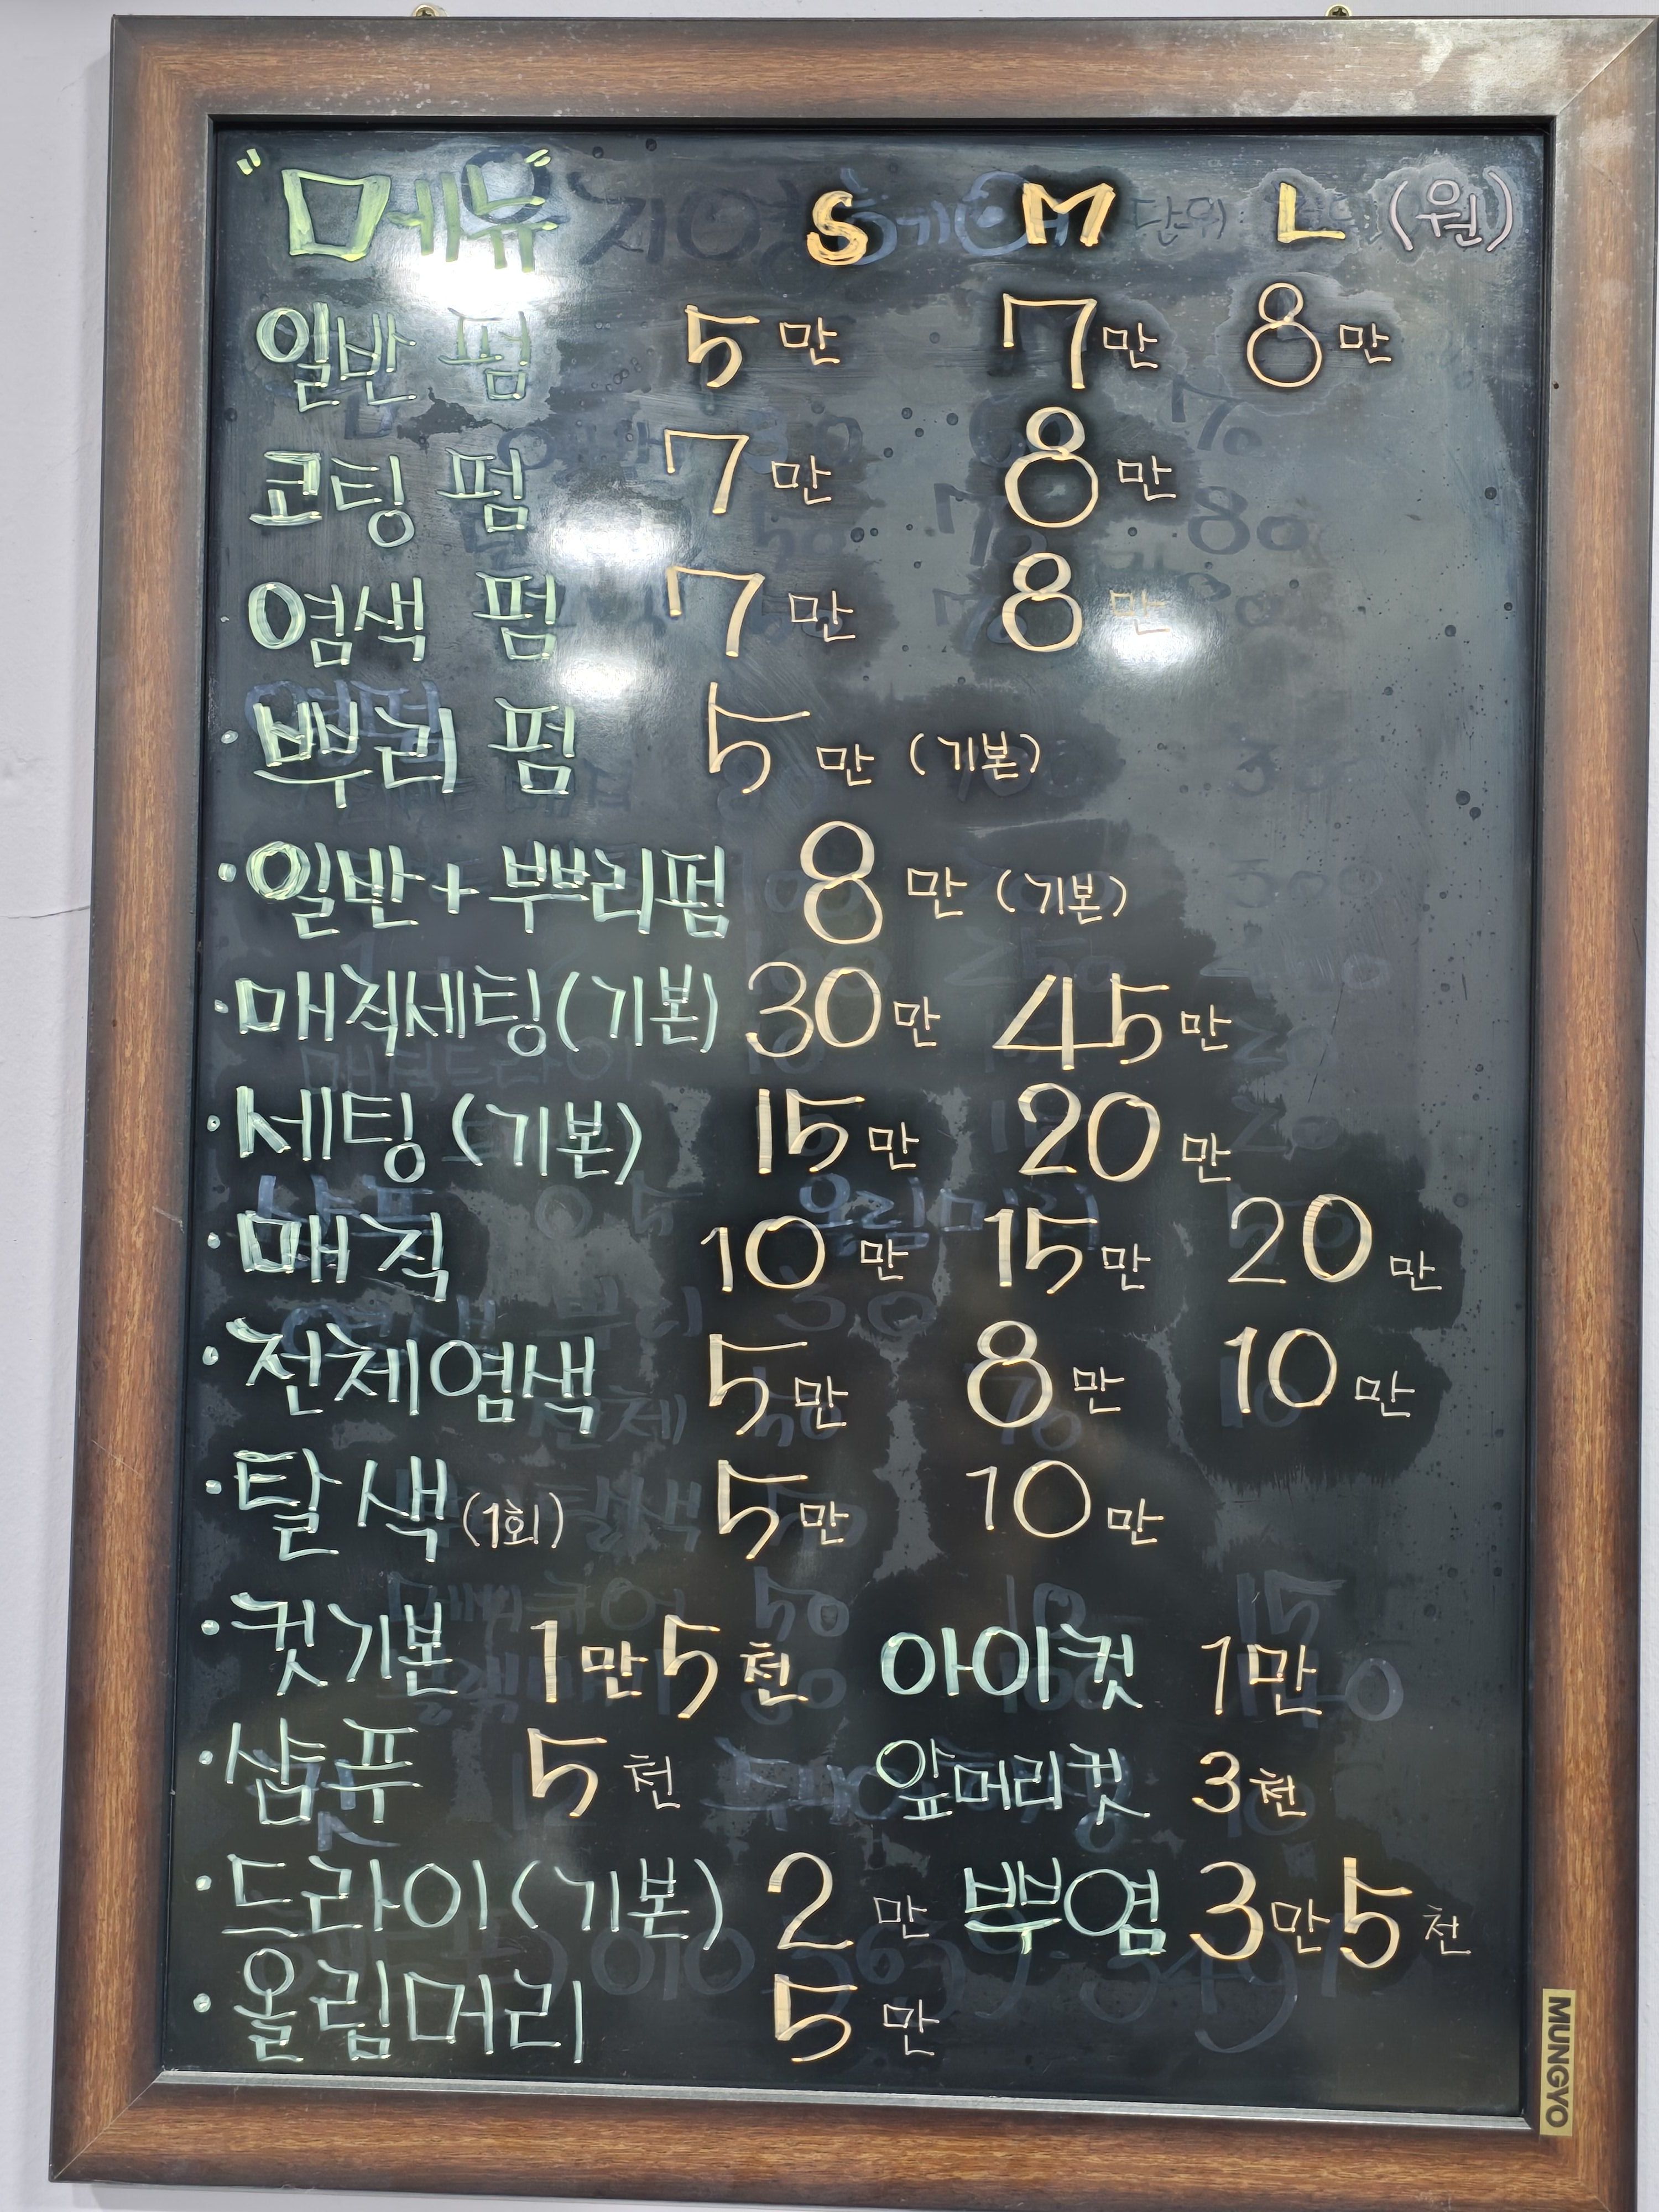 "메뉴" S M L (원)
일반 펌 5만 7만 8만
코팅 펌 7만 8만
염색 펌 7만 8만
·뿌리 펌 5만 (기본)
·일반+뿌리펌 8만 (기본)
·매직세팅(기본) 30만 45만
·세팅 (기본) 15만 20만
·매직 10만 15만 20만
·전체염색 5만 8만 10만
·탈색(1회) 5만 10만
·컷기본 1만5천 아이컷 1만
·샴푸 5천 앞머리컷 3천
·드라이(기본) 2만 뿌염 3만5천
·올림머리 5만
MUNGYO